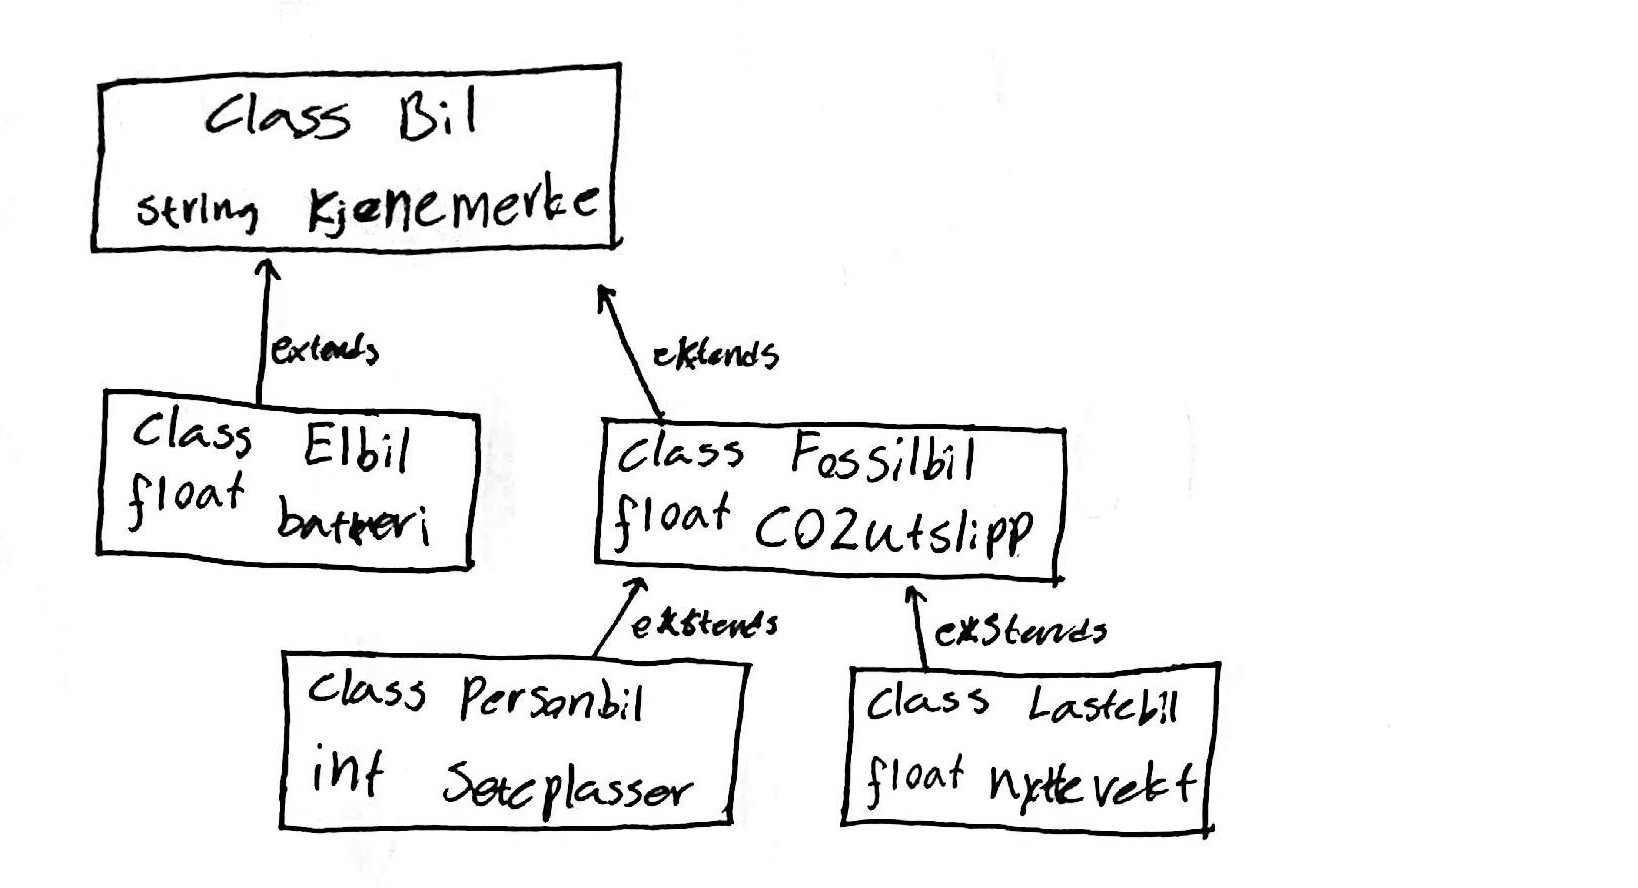 Class Bil
string Kjenemerke
extends
ektends
Class Elbil
float batteri
class Fossilbil
float CO2utslipp
ekstends
exstends
class Personbil
int Seteplasser
class Lastebil
float nyttevekt